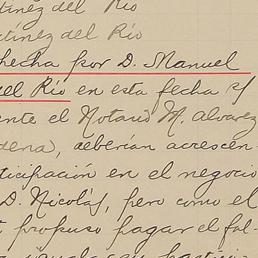 tínez del Río
rtínez del Río
hecha por D. Manuel
el Río en esta fecha p/
ente el Notario M. Alvarez
dena, deberían acrescen-
ticipación en el negocio
D. Nicolás, pero como el
propuso pagar el fal-